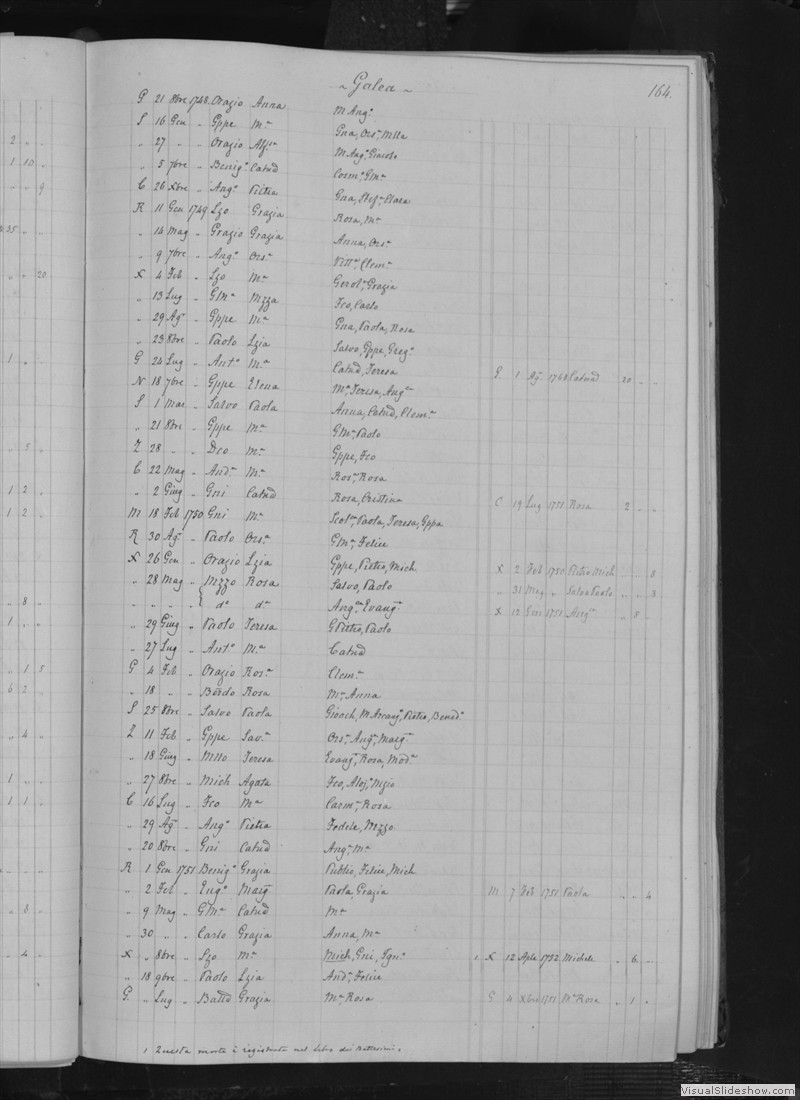 ~ Galea ~ 164.
G 21 8bre 1748 Orazio Anna M Ang.a
S 16 Gen " Gppe M.a Gna, Ors.a Mlla
" 27 " " Orazio M Ang.a Giacoba
" 5 7bre " Benig.o Catnd Cosm.o GM.a
C 26 Xbre " Ang.o Pietra Gna, Stef.a Clara
R 11 Gen 1749 Lzo Grazia Rosa, M.a
" 14 Mag " Grazio Grazia Anna, Ors.a
" 9 7bre " Ang.o Ors.a Vitt.a Clem.a
X 4 Feb " Lzo M.a Gerol.a Grazia
" 13 Lug " GM.a Mzza Fco, Carlo
" 29 Ag.o " Gppe M.a Gna, Paola, Rosa
" 23 8bre " Paolo Lzia Salvo, Gppe, Greg.o
G 24 Lug " Ant.o M.a Catnd, Teresa G 1 Ag. 1748 Catnd 20 " "
N 18 7bre " Gppe Elena M.a Teresa, Ang.a
S 1 Mar " Salvo Paola Anna, Catnd, Clem.a
" 21 8bre " Gppe M.a GM.a, Paolo
Z 28 " " Dco M.a Gppe, Fco
C 22 Mag " And.a M.a Ros.a Rosa
" 2 Giug " Gni Catnd Rosa, Cristina C 19 Lug 1751 Rosa 2 " "
M 18 Feb 1750 Gni M.a Scol.a Paola, Teresa, Gppa
R 30 Ag.o " Paolo Ors.a GM.a Felice
X 26 Gen " Orazio Lzia Gppe, Pietro, Mich X 2 Feb 1750 Pietro Mich " " 8
" 28 Mag " Mzzo Rosa Salvo, Paolo " 31 Mag " Salvo Paolo " " 3
" " " " d.o d.a Ang.a Evang.a X 12 Gen 1751 Ang.a " 8 "
" 29 Giug " Paolo Teresa GPietro, Paolo
" 27 Lug " Ant.o M.a Catnd
G 4 Feb " Orazio Ros.a Clem.a
" 18 " " Bordo Rosa M.a Anna
S 25 8bre " Salvo Paola Gioach, M Arcang.o Pietro, Bened.o
Z 11 Feb " Gppe Sav.a Ors.a Ang.a Marg.a
" 18 Giug " Mllo Teresa Evang.a Rosa, Mod.a
" 27 8bre " Mich Agata Fco, Aloj.o Mzio
C 16 Lug " Fco M.a Carm.a Rosa
" 29 Ag.o " Ang.o Pietra Fedele, Mzzo
" 20 8bre " Gni Catnd Ang.a M.a
R 1 Gen 1751 Benig.o Grazia Publio, Felice, Mich
" 2 Feb " Eug.o Marg.a Paola, Grazia M. 7 Feb 1751 Paola " " 4
" 9 Mag " GM.a Catnd M.a
" 30 " " Carlo Grazia Anna, M.a
X " 8bre " Lzo M.a Mich, Gni, Ign.o 1 X 12 Aple 1752 Michele " 6 "
" 18 9bre " Paolo Lzia And.a Felice
G " Lug " Battd Grazia M.a Rosa G 4 Xbre 1751 M.a Rosa " 1 "
1 Questa morte è registrata nel Libro dei Battesimi.
VisualSlideshow.com